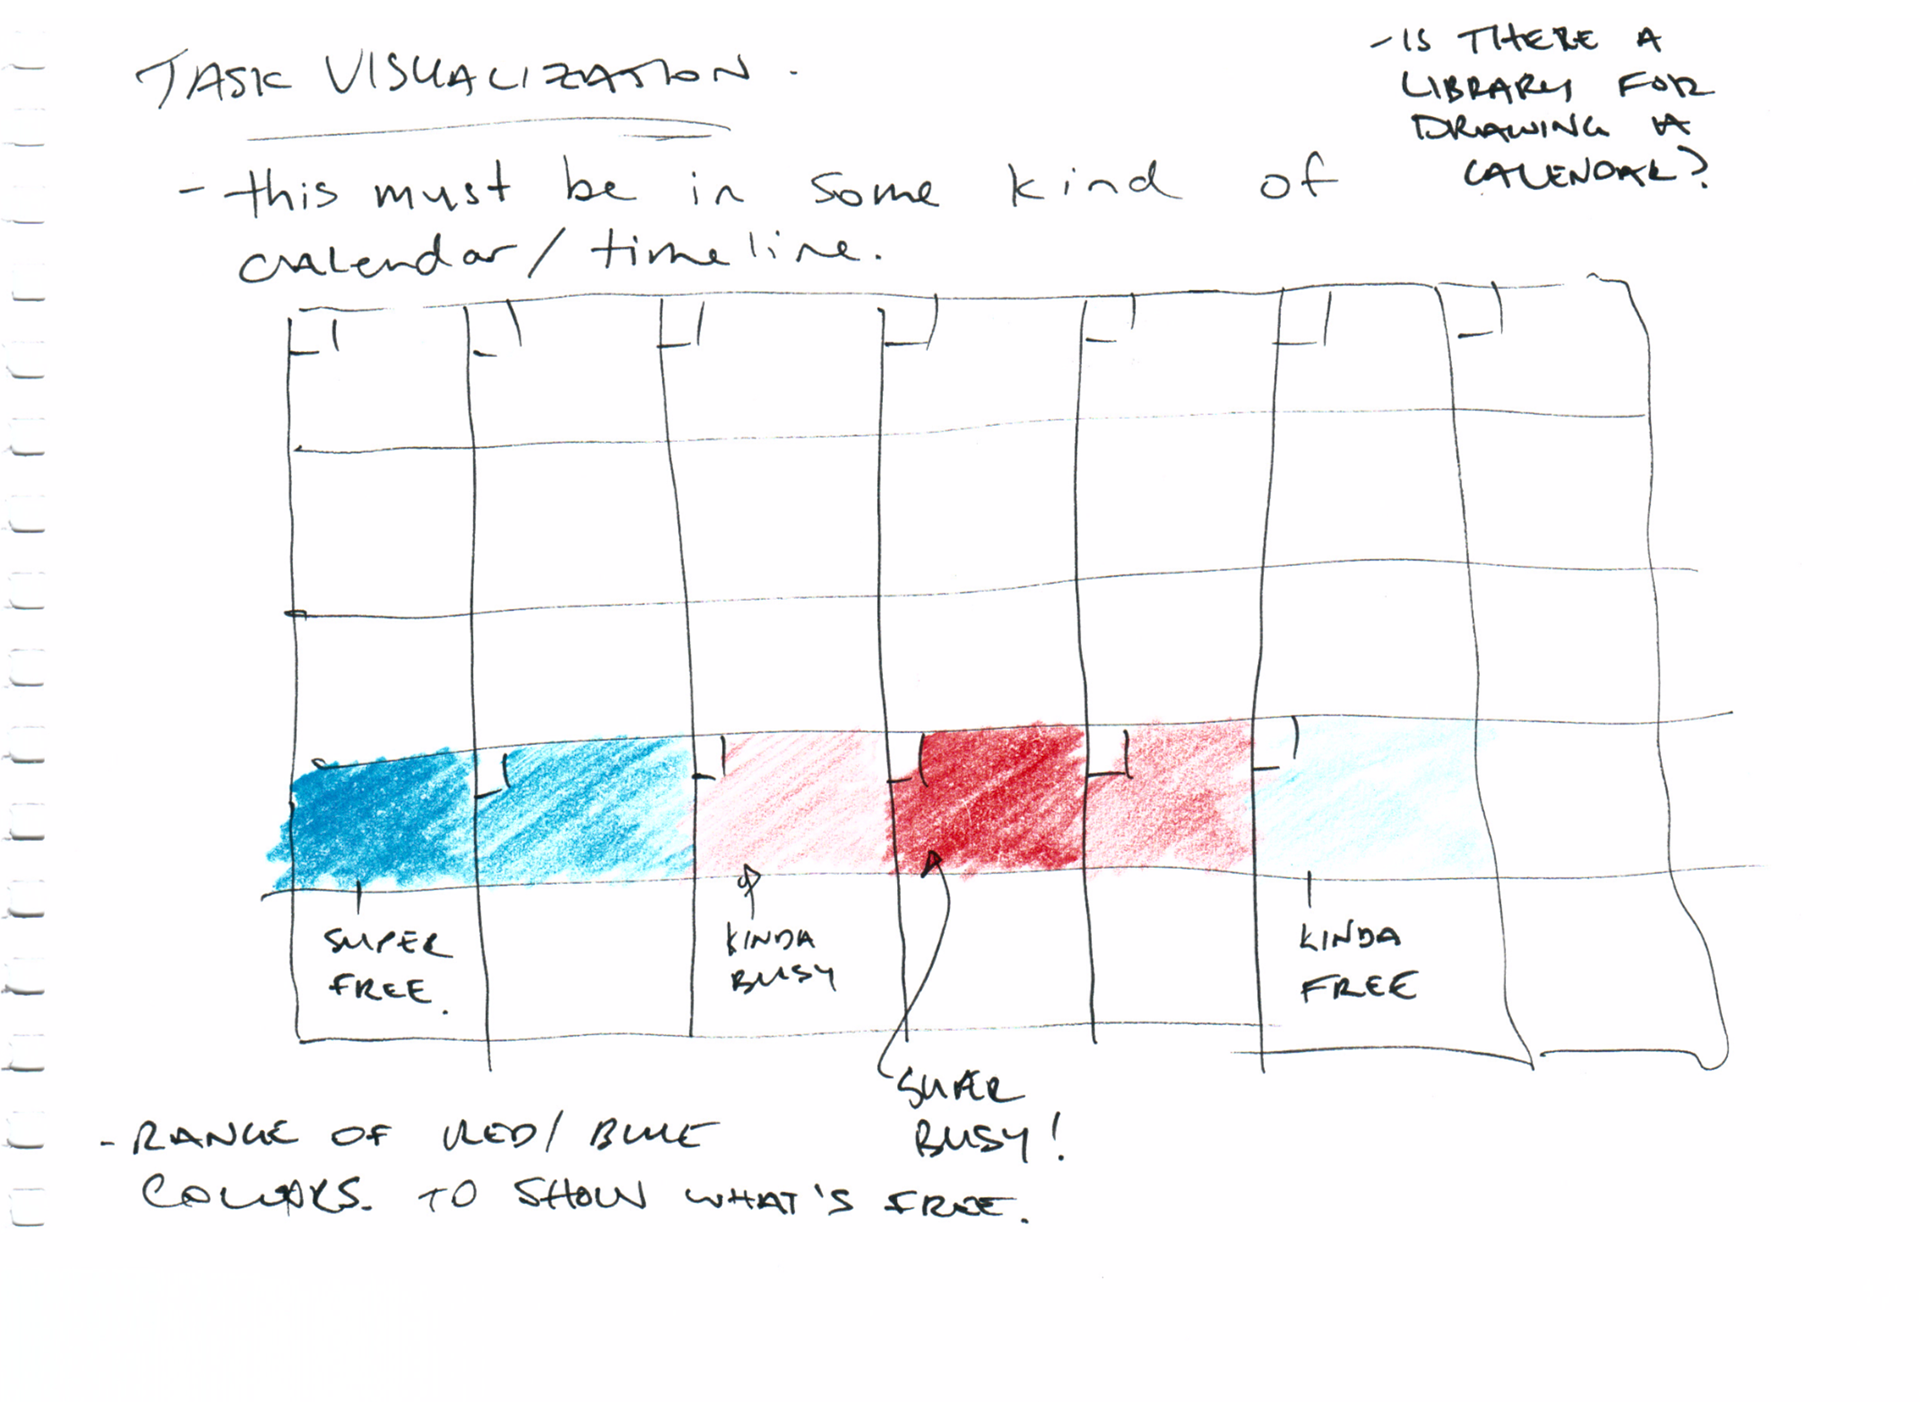 TASK VISUALIZATION.
- IS THERE A
LIBRARY FOR
DRAWING A
CALENDAR?
- this must be in some kind of
calendar/timeline.
SUPER
FREE.
KINDA
BUSY
KINDA
FREE
SUPER
BUSY!
- RANGE OF RED/BLUE
COLOURS. TO SHOW WHAT'S FREE.